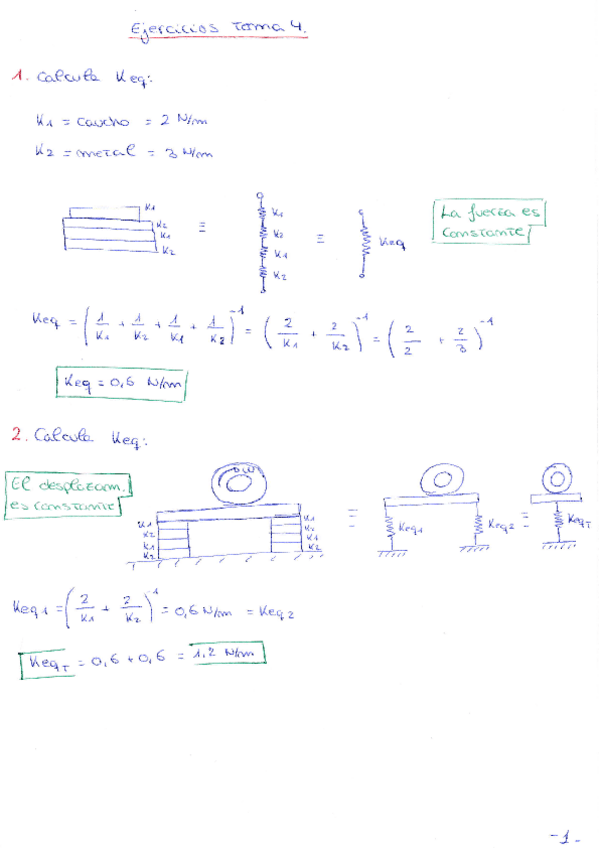 Ejercicios Tema 4.
1. Calcula Keq:
K1 = caucho = 2 N/m
K2 = metal = 3 N/m
K1
K2
K1
K2
≡
K1
K2
K1
K2
≡
Keq
La fuerza es
constante
Keq = (1/K1 + 1/K2 + 1/K1 + 1/K2)^-1 = (2/K1 + 2/K2)^-1 = (2/2 + 2/3)^-1
Keq = 0,6 N/m
2. Calcula Keq:
El desplazam.
es constante
K1
K2
K1
K2
K1
K2
K1
K2
≡
Keq1
Keq2
≡
KeqT
Keq1 = (2/K1 + 2/K2)^-1 = 0,6 N/m = Keq2
KeqT = 0,6 + 0,6 = 1,2 N/m
-1-